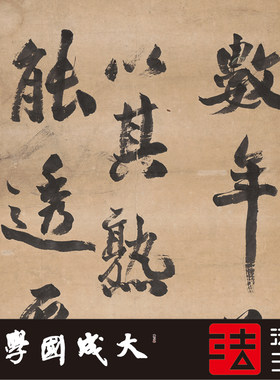 數年
以其熟
能透
大成國學
法